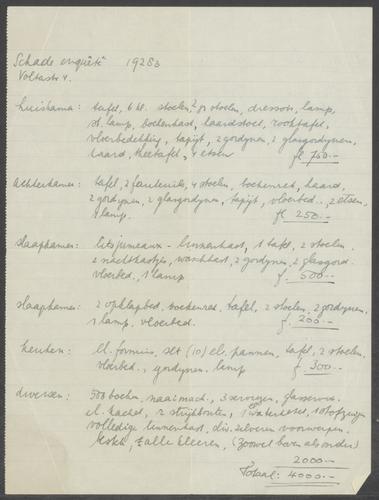 Schade enquête 19283
Voltastr 4.
huiskamer: tafel, 6 kl. stoelen, 2 gr stoelen, dressoir, lamp,
st. lamp, boekenkast, haardstoel, rooktafel,
vloerbedekking, tapijt, 2 gordijnen, 2 glasgordijnen,
haard, theetafel, 4 etsen fl 750.--
Achterkamer: tafel, 2 fauteuils, 4 stoelen, boekenrek, haard,
2 gordijnen, 2 glasgordijnen, tapijt, vloerbed., 2 etsen,
1 lamp. fl 250.--
slaapkamer: lits jumeaux - linnenkast, 1 tafel, 2 stoelen,
2 nachtkastjes, waschkast, 2 gordijnen, 2 glasgord.
vloerbed, 1 lamp f. 500.--
slaapkamer: 2 opklapbed, boekenrek, tafel, 2 stoelen, 2 gordijnen,
1 lamp, vloerbed. f. 200.--
keuken: el. fornuis, set (10) el. pannen, tafel, 2 stoelen,
vloerbed., gordijnen, lamp f. 300.--
diversen: 500 boeken, naaimach., 3 serviezen, glasservies
el. kachel, 2 strijkbouten, 1 waterketel, 1 stofzuiger
volledige linnenkast, div. zilveren voorwerpen
alle kleeren, (zoowel boven als onder)
2000.--
Totaal: 4000.--